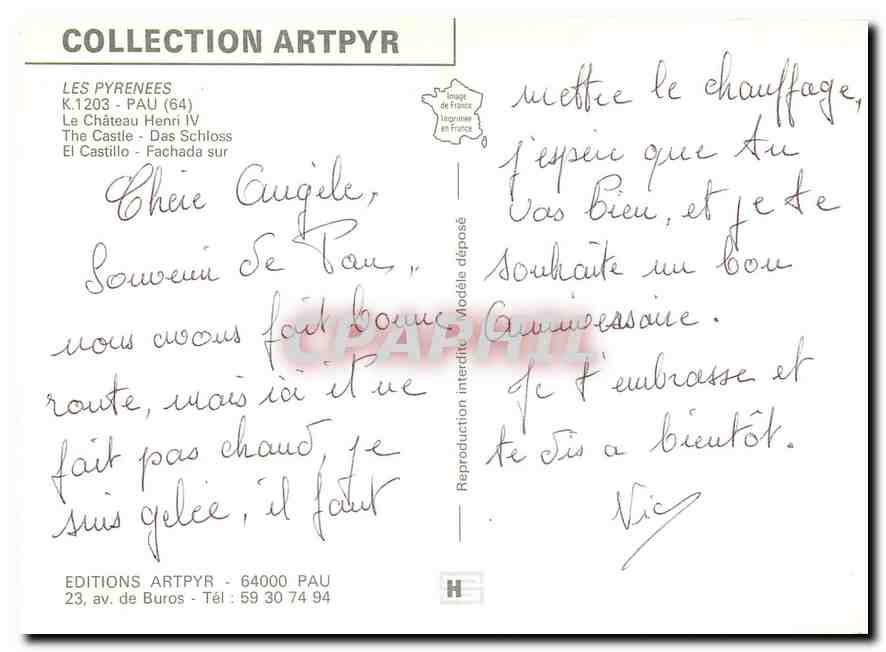 COLLECTION ARTPYR
LES PYRENEES
K.1203 - PAU (64)
Le Château Henri IV
The Castle - Das Schloss
El Castillo - Fachada sur
Image
de France
Imprimée
en France
Chère Angèle,
Souvenir de Pau,,
nous avons fait bonne
route, mais ici il ne
fait pas chaud, je
suis gelée, il faut
mettre le chauffage,
j'espère que tu
vas bien, et je te
souhaite un bon
anniversaire.
Je t'embrasse et
te dis a bientôt.
Vic
Reproduction interdite - Modèle déposé
CPAPHIL
EDITIONS ARTPYR - 64000 PAU
23, av. de Buros - Tél : 59 30 74 94
H